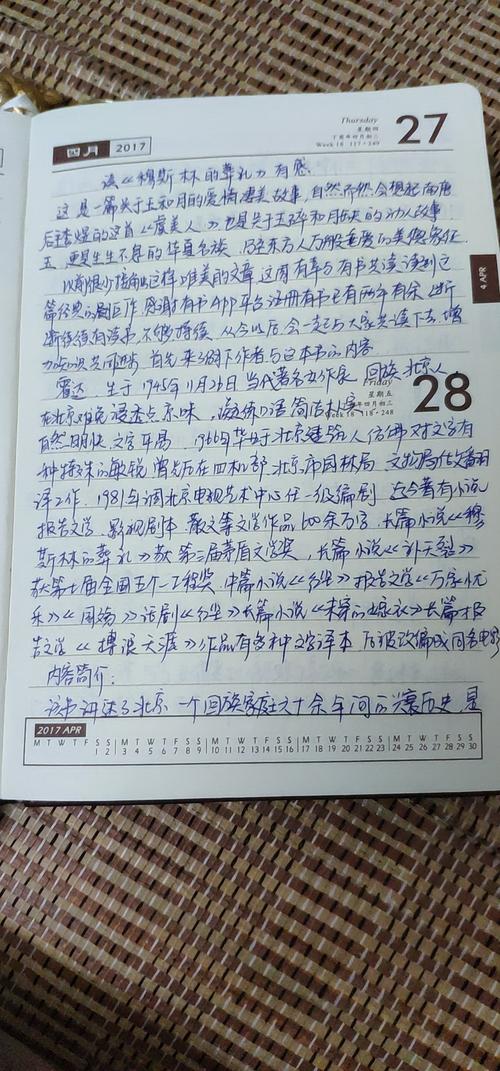 四月 2017
Thursday
星期四
丁酉年四月初二
Week 18 117-248
27
读《穆斯林的葬礼》有感
这是一篇关于玉和月的爱情凄美故事,自然而然会想起南唐
后主李煜的这首《虞美人》也是关于玉碎和月伤失的动人故事
玉 更是生生不息的华夏名族 乃至东方人万般垂爱的美德象征
以前很少接触这样唯美的文章 这周有幸与有书共读读到这
篇经典的剧巨作 感谢有书APP平台 注册有书已有两年有余 断
断续续有读书 不够持续 从今以后会一起与大家共读下去 增
力知识共同进步 首先来了解下作者与这本书的内容
霍达,生于1945年11月26日 当代著名女作家 回族 北京人
Friday
星期五
年四月初三
Week 18 118-248
28
4 APR
在北京难免浸透点京味 减练口语简洁朴实
自然明快 文字平易 1966年毕业于北京建筑 人仿佛对文字有
种特殊的敏锐 曾先后在四机部 北京市园林局 文物局任文番翻
译工作 1981年调北京电视艺术中心任一级编剧 迄今著有小说
报告文学 影视剧本 散文等文学作品 600余万字 长篇小说《穆
斯林的葬礼》获第三届茅盾文学奖 长篇小说《补天裂》
获第七届全国五个一工程奖 中篇小说《红尘》报告文学《万家忧
乐》《国殇》话剧《红尘》长篇小说《未穿的嫁衣》长篇报
告文学《搏浪天涯》作品有多种文字译本 后被改编成同名电影
内容简介:
该书讲述了北京 一个回族家庭六十余年间的兴衰历史 是
2017 APR
M T W T F S S M T W T F S S M T W T F S S M T W T F S S M T W T F S S
1 2 3 4 5 6 7 8 9 10 11 12 13 14 15 16 17 18 19 20 21 22 23 24 25 26 27 28 29 30